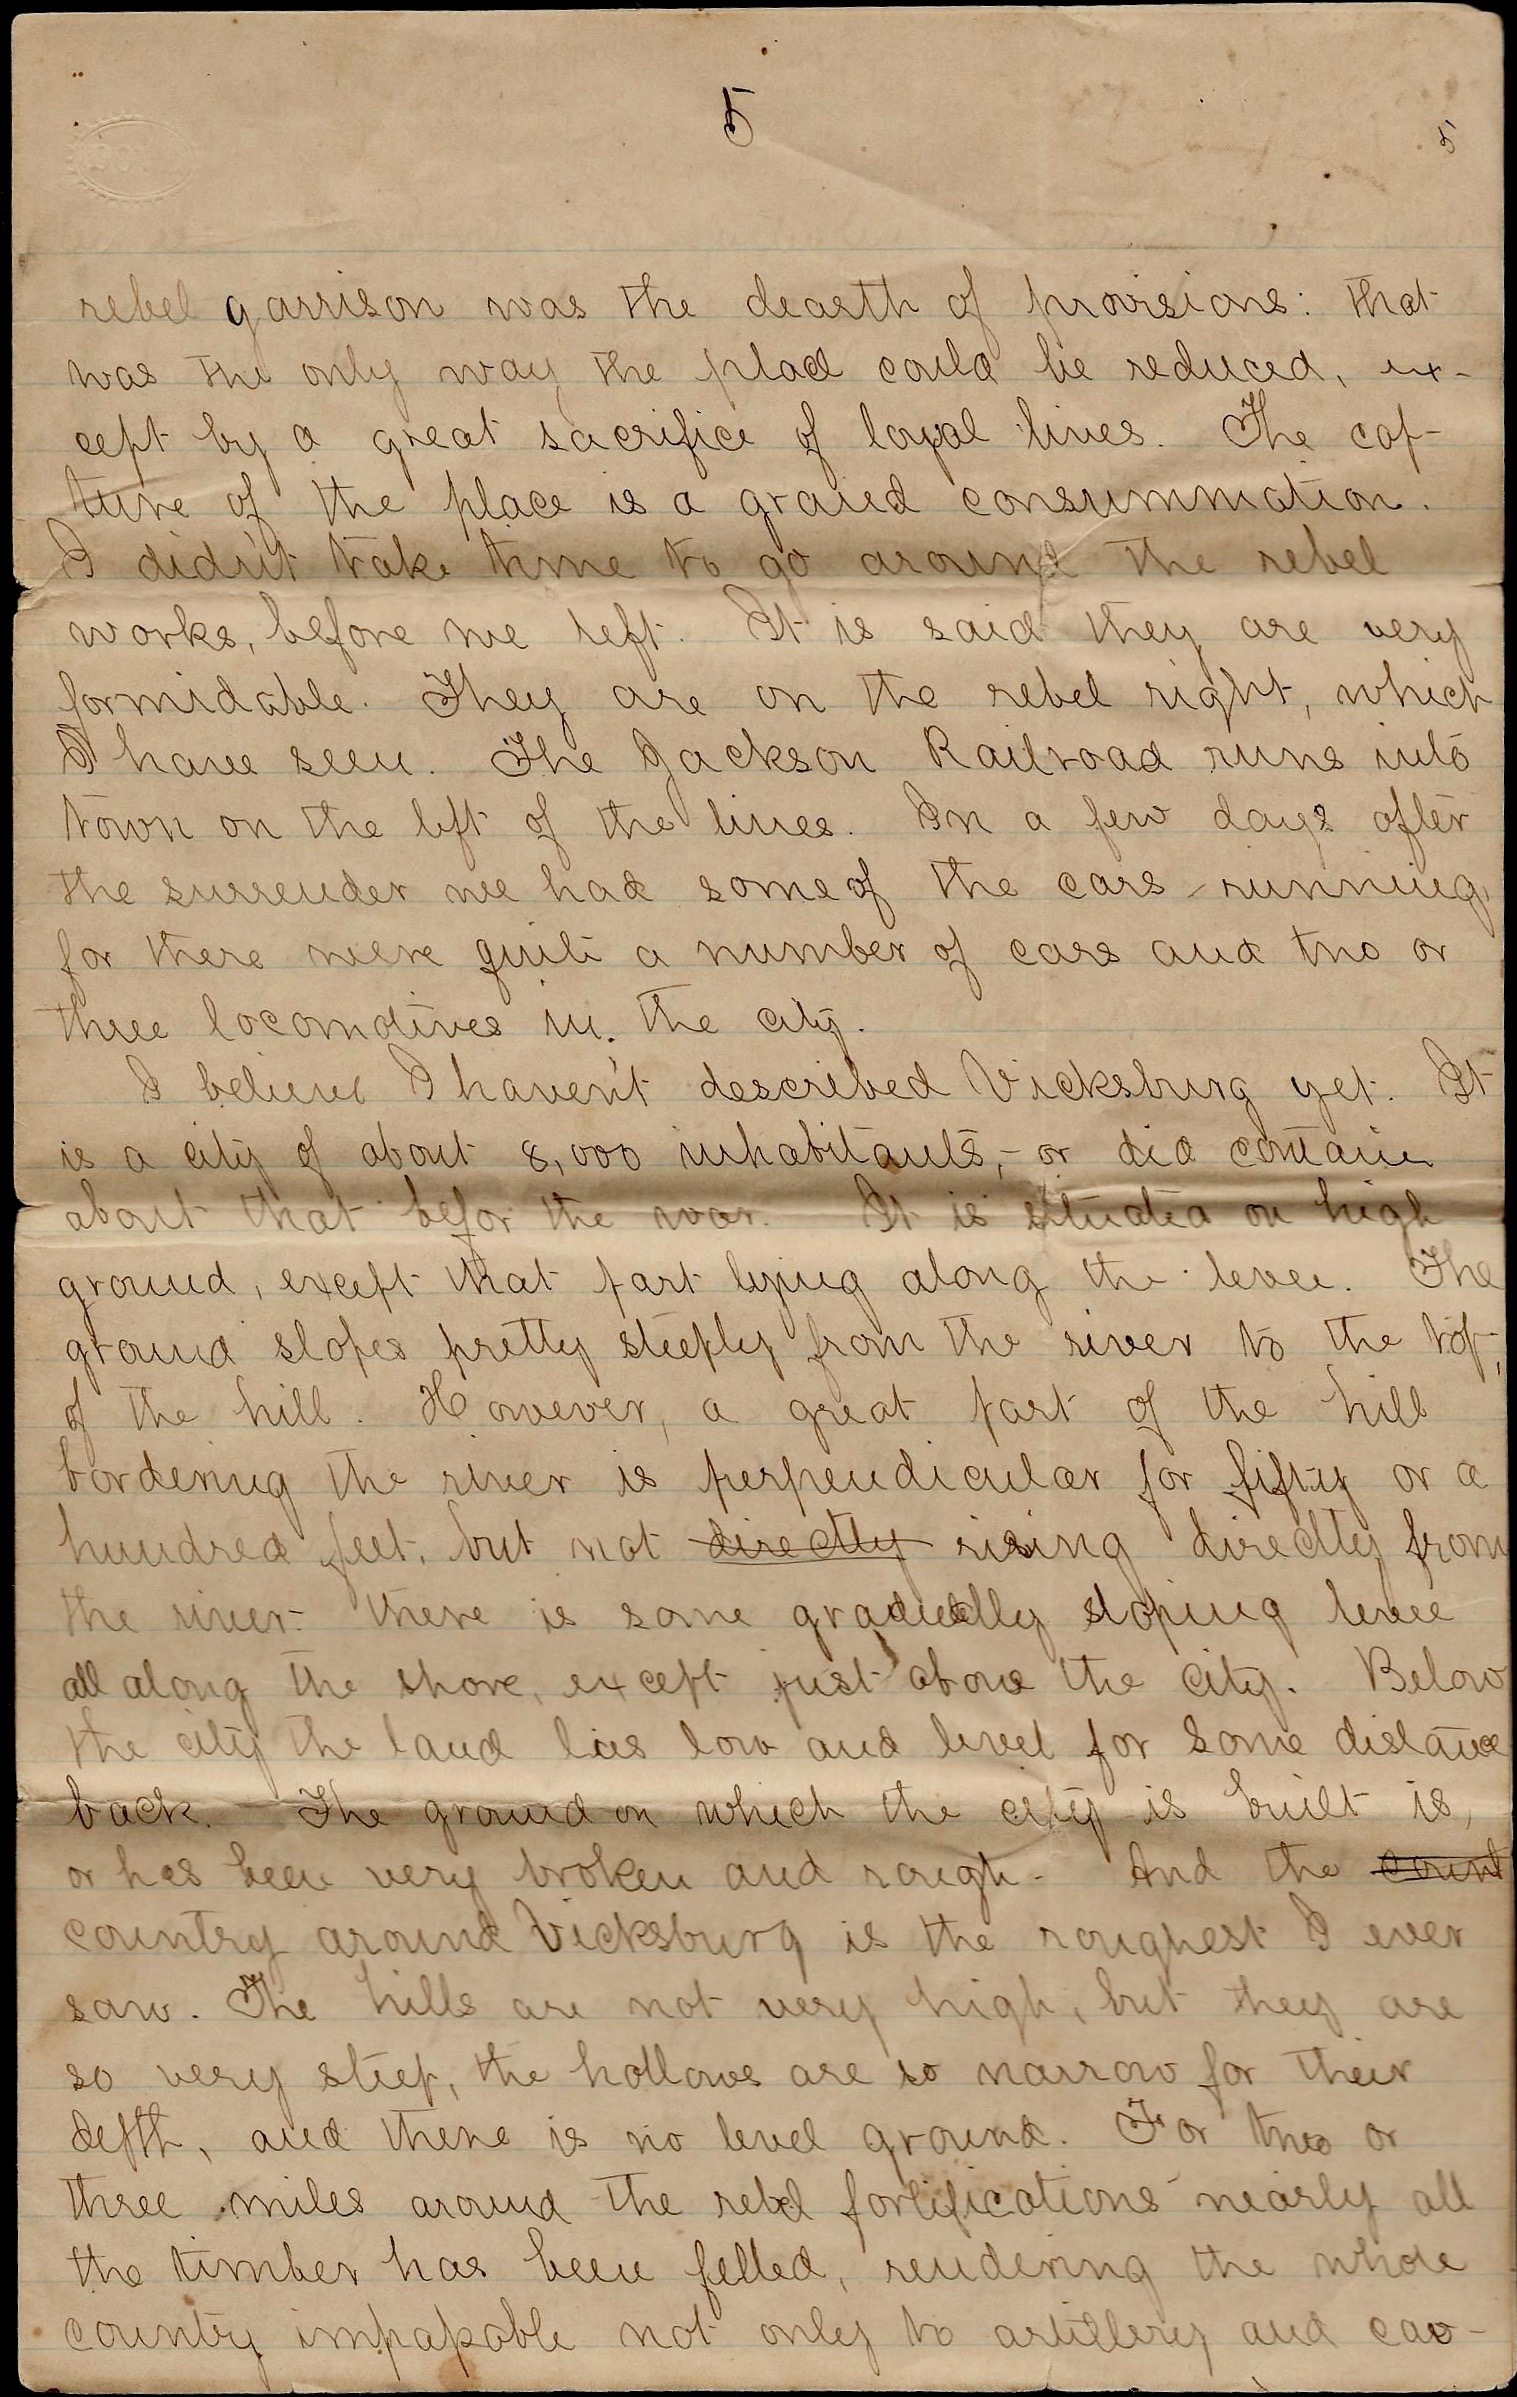 5
5
rebel garrison was the dearth of provisions: that
was the only way the place could be reduced, ex-
cept by a great sacrifice of loyal lives. The cap-
ture of the place is a grand consummation.
I didn't take time to go around the rebel
works, before we left. It is said they are very
formidable. They are on the rebel right, which
I have seen. The Jackson Railroad runs into
town on the left of the lines. In a few days after
the surrender we had some of the cars running,
for there were quite a number of cars and two or
three locomotives in the city.
I believe I haven't described Vicksburg yet. It
is a city of about 8,000 inhabitants,- or did contain
about that befor the war. It is situated on high
ground, except that part lying along the levee. The
ground slopes pretty steeply from the river to the top,
of the hill. However, a great part of the hill
bordering the river is perpendicular for fifty or a
hundred feet, but not directly rising directly from
the river- there is some gradually sloping levee
all along the shore, except just above the city. Below
the city the land lies low and level for some distance
back. The ground on which the city is built is,
or has been very broken and rough. And the count
country around Vicksburg is the roughest I ever
saw. The hills are not very high, but they are
so very steep, the hollows are so narrow for their
depth, and there is no level ground. For two or
three miles around the rebel fortifications nearly all
the timber has been felled, rendering the whole
country impapable not only to artillery and cav-